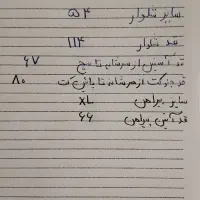 سایز شلوار ۵۴
قد شلوار ۱۱۴
قد آستین از سرشانه تا مچ ۶۷
قد جلو کت از سرشانه تا پائین کت ۸۰
سایز پیراهن XL
قد آستین پیراهن ۶۶